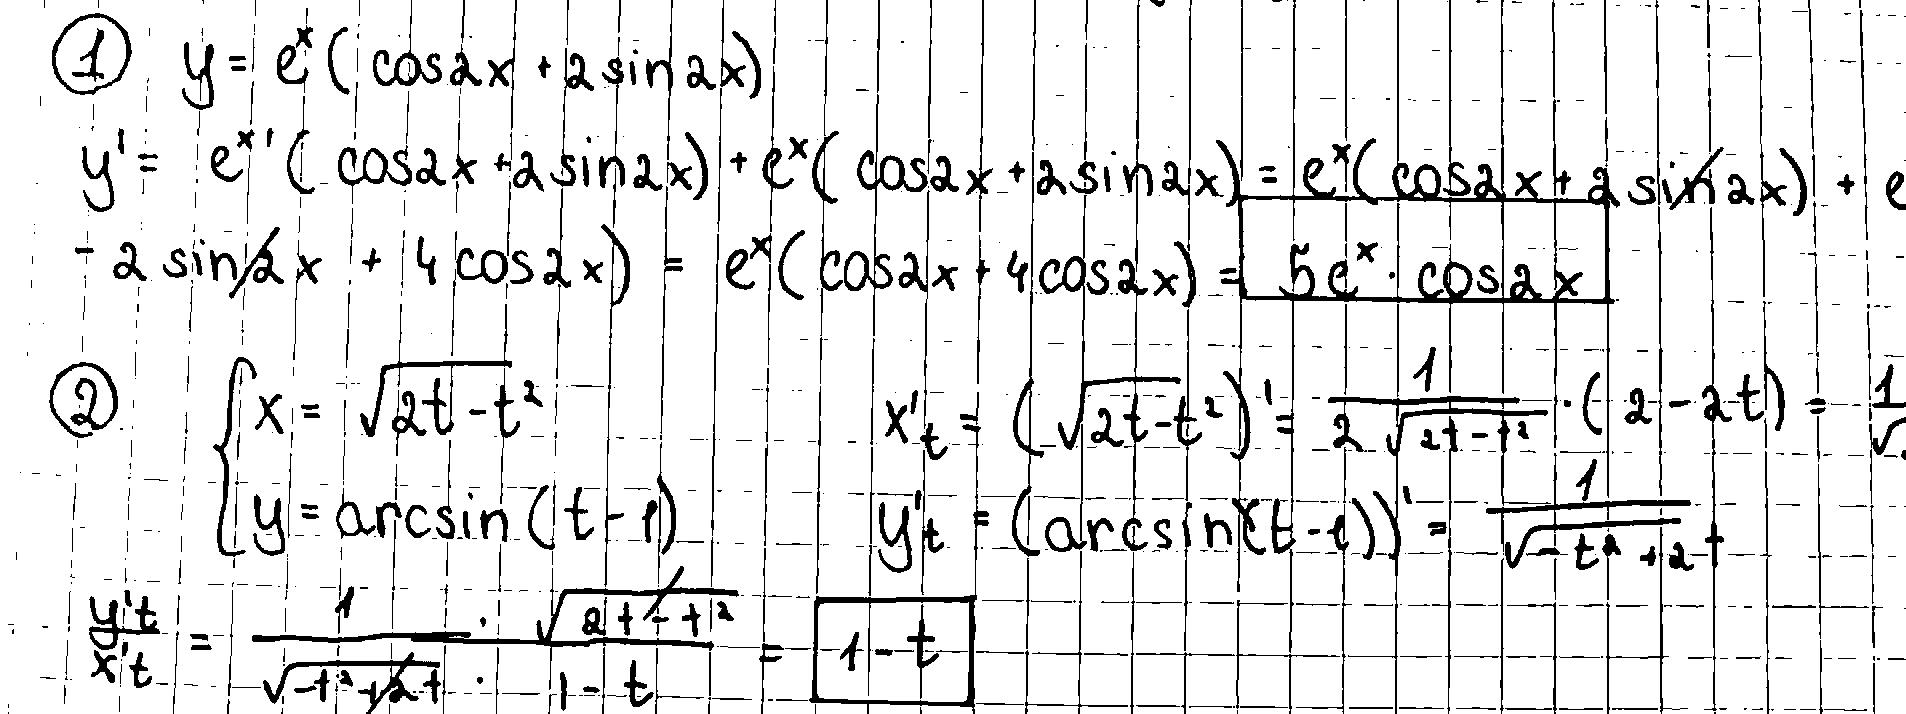 ① y = e^x ( cos2x + 2 sin 2x)
y' = e^x ' ( cos2x + 2 sin2x) + e^x ( cos2x + 2 sin 2x) = e^x ( cos2x + 2 sin 2x) + e
- 2 sin 2x + 4 cos2x) = e^x ( cos2x + 4 cos2x) = 5e^x · cos2x
② { x = √(2t - t²) x't = (√(2t - t²))' = 1 / (2 √(2t - t²)) · (2 - 2t) = 1 / √
y = arcsin (t - 1) y't = (arcsin(t - 1))' = 1 / √(-t² + 2t)
y't / x't = 1 / √(-t² + 2t) · √(2t - t²) / (1 - t) = 1 - t